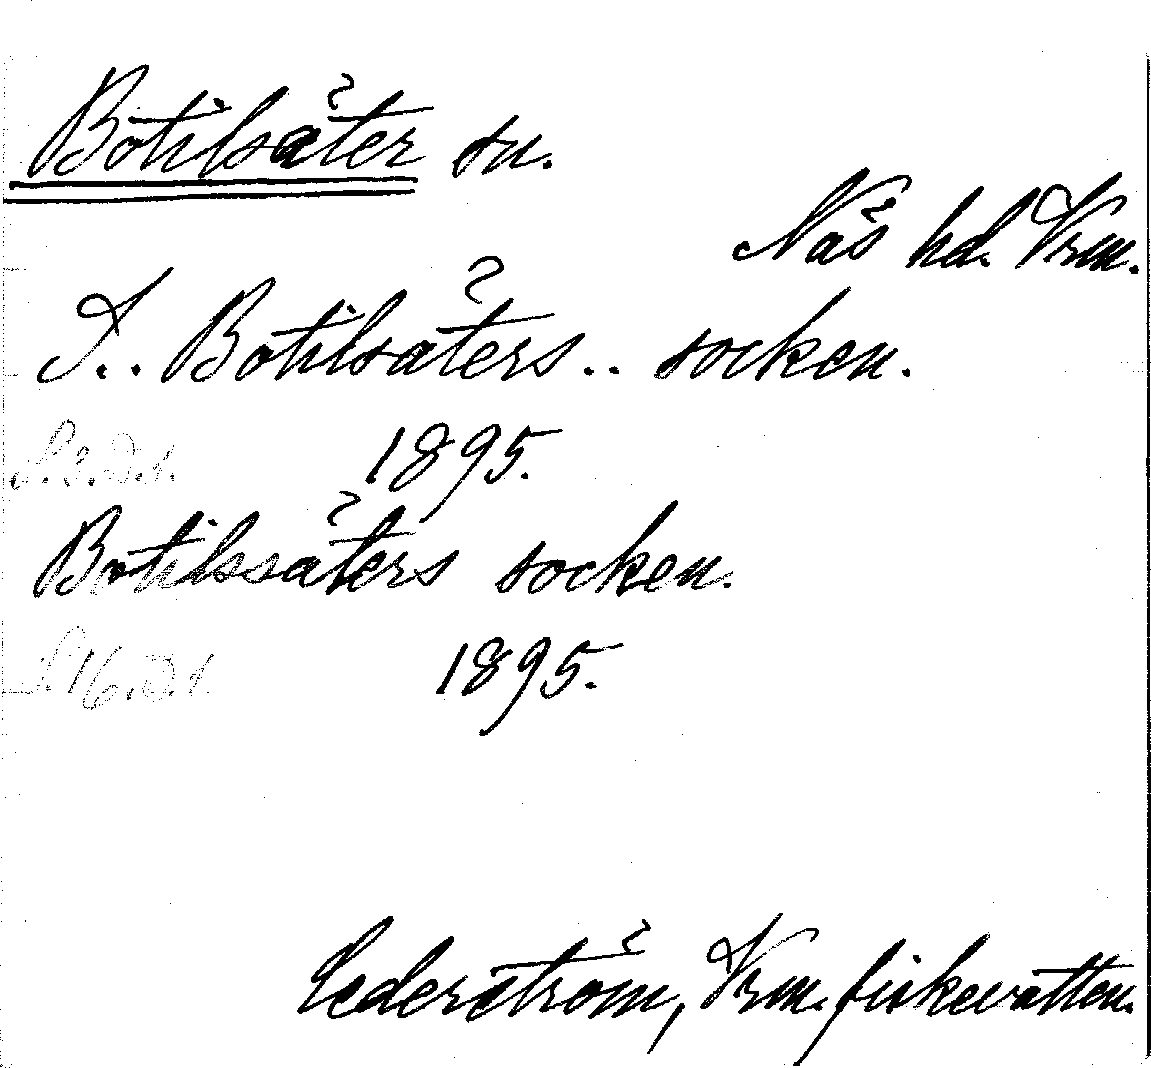 Botilsäter sn.
Näs hd. Vrm.
I.. Botilsäters.. socken.
S. 3. D. 1. 1895.
Botilssäters socken.
S. 16. D. 1. 1895.
Cederström, Vrm. fiskevatten.